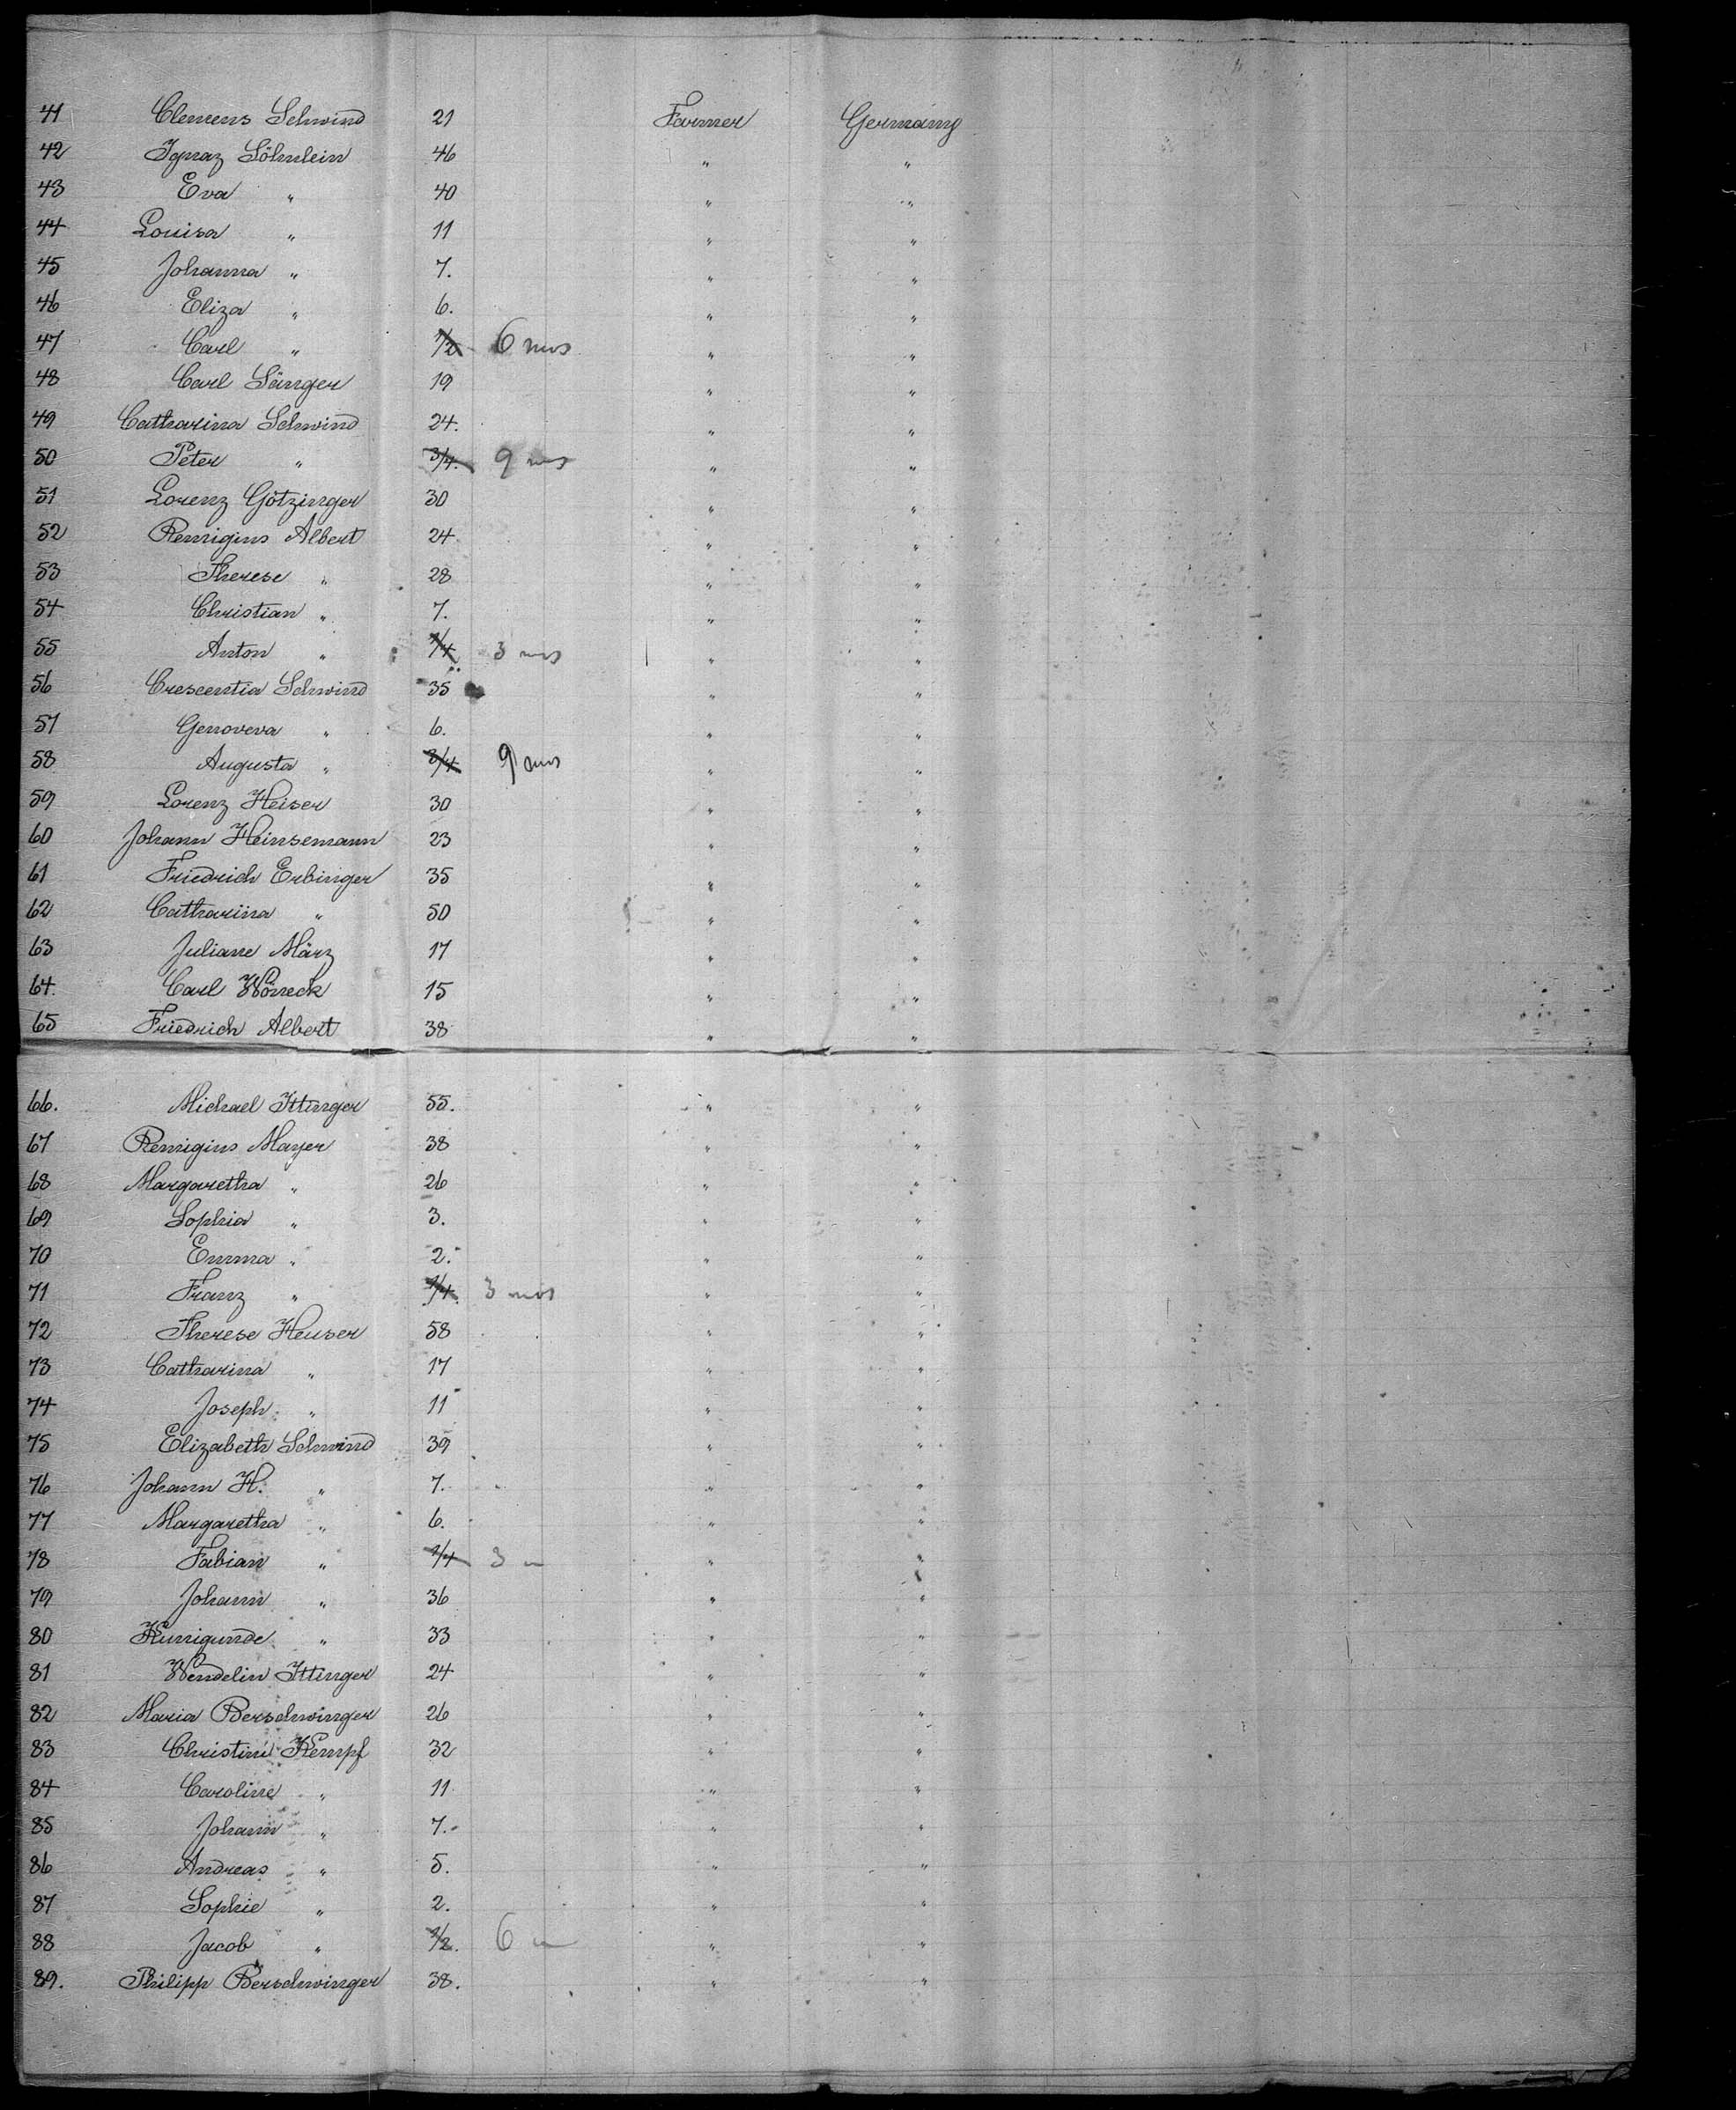 41 Clemens Schwind 21 Farmer Germany
42 Ignaz Söhnlein 46 " "
43 Eva " 40 " "
44 Louisa " 11 " "
45 Johanna " 7. " "
46 Eliza " 6. " "
47 Carl " 1/2 6 mos " "
48 Carl Sänger 19 " "
49 Catharina Schwind 24. " "
50 Peter " 3/4. 9 mos " "
51 Lorenz Götzinger 30 " "
52 Remigius Albert 24 " "
53 Therese " 28 " "
54 Christian " 7. " "
55 Anton " 1/4 3 mos " "
56 Crescentia Schwind 35 " "
57 Genoveva " 6. " "
58 Augusta " 3/4 9 mos " "
59 Lorenz Heiser 30 " "
60 Johann Heinsemann 23 " "
61 Friedrich Erbinger 35 " "
62 Catharina " 50 " "
63 Juliane März 17 " "
64. Carl 15 " "
65 Friedrich Albert 38 " "
66. Michael Ittinger 55. " "
67 Remigius Mayer 38 " "
68 Margaretha " 26 " "
69 Sophia " 3. " "
70 Emma " 2. " "
71 Franz " 1/4. 3 mos " "
72 Therese Heuser 58 " "
73 Catharina " 17 " "
74 Joseph " 11 " "
75 Elizabeth Schwind 39 " "
76 Johann H. " 7. " "
77 Margaretha " 6. " "
78 Fabian " 1/4 3 m " "
79 Johann " 36 " "
80 Kunigunde " 33 " "
81 Wendelin Ittinger 24 " "
82 Maria Berschwinger 26 " "
83 Christine Kempf 32 " "
84 Caroline " 11 " "
85 Johann " 7. " "
86 Andreas " 5. " "
87 Sophie " 2. " "
88 Jacob " 1/2. 6 m " "
89. Philipp Berschwinger 38. " "